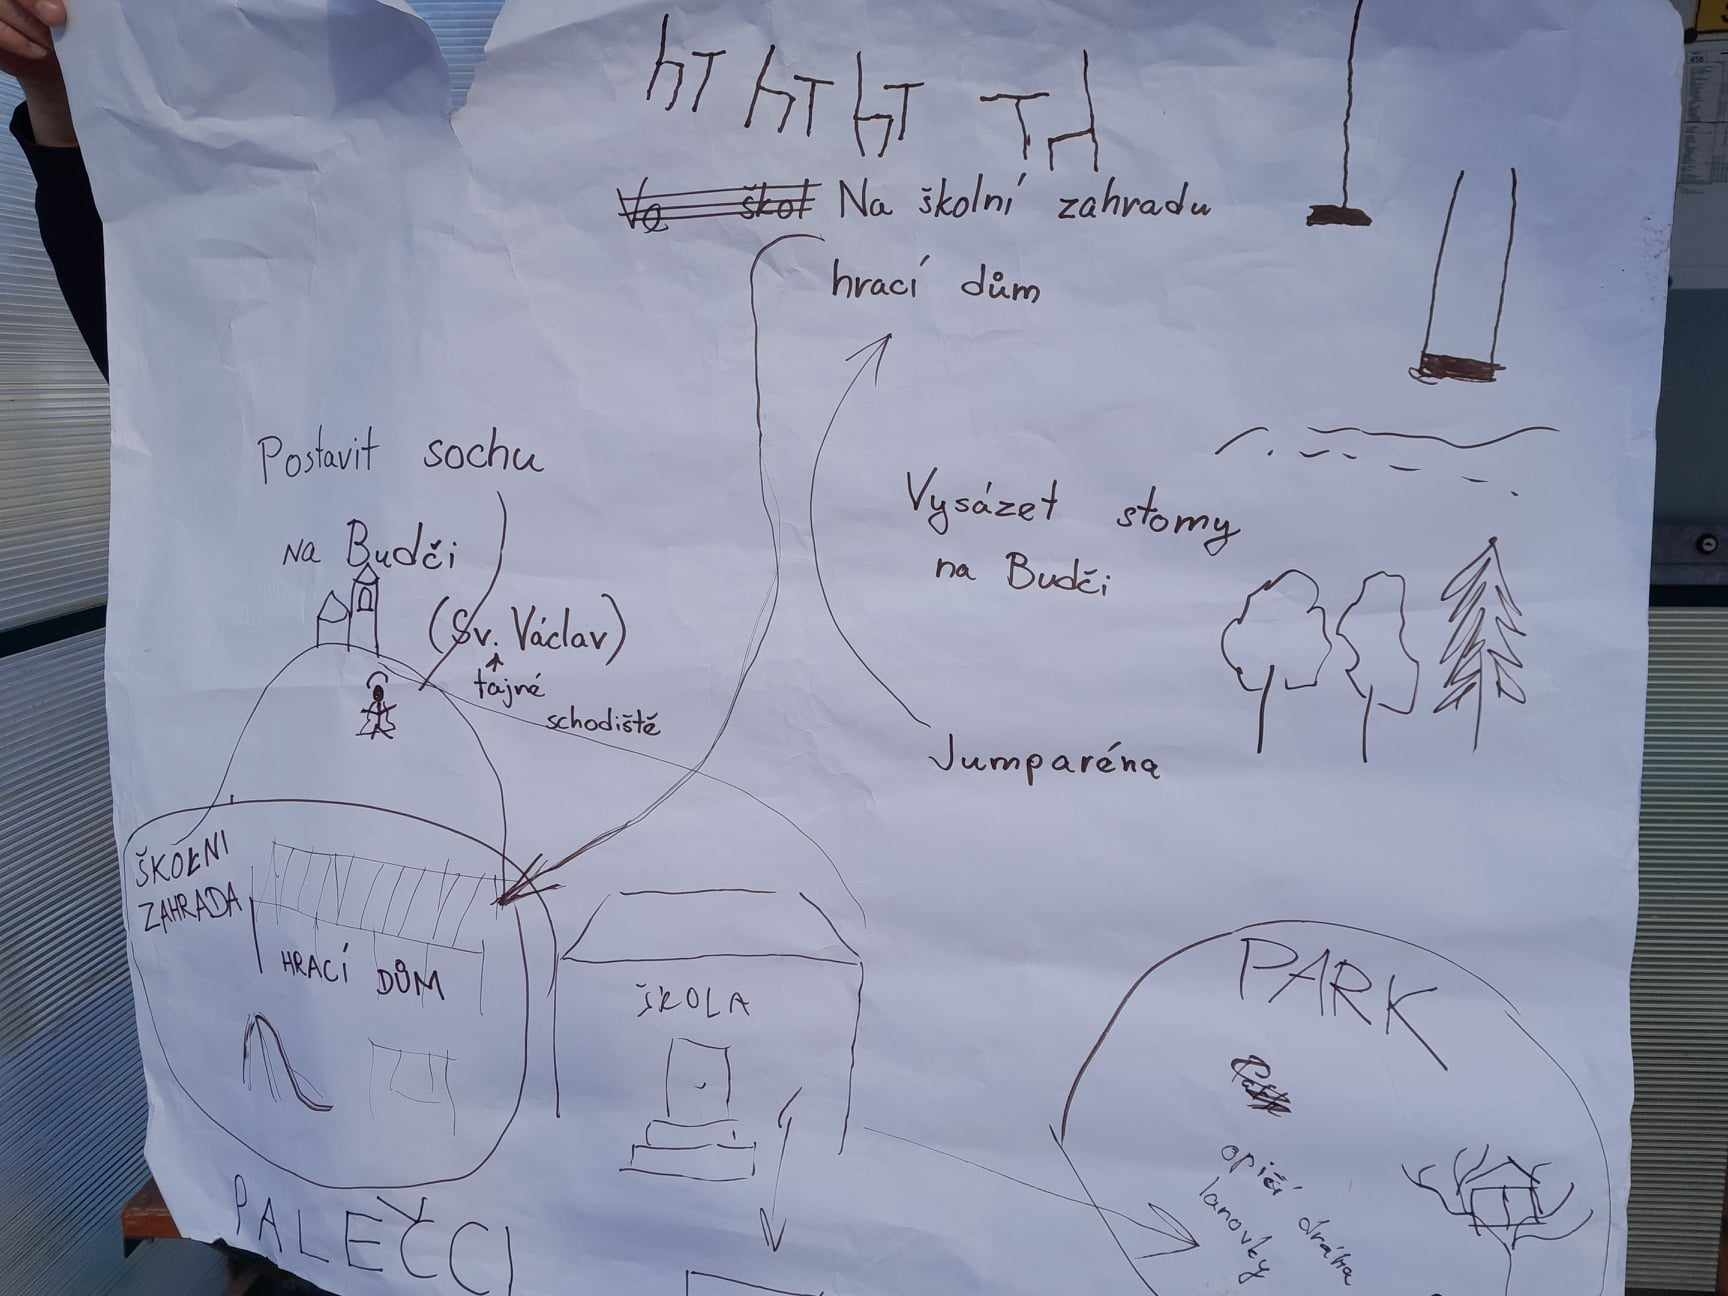 Na školní zahradu
hrací dům
Postavit sochu
na Budči
(Sv. Václav)
tajné
schodiště
Vysázet stomy
na Budči
Jumparéna
ŠKOLNI
ZAHRADA
HRACÍ DŮM
ŠKOLA
PARK
opičí dráha
lanovky
PALEČCI